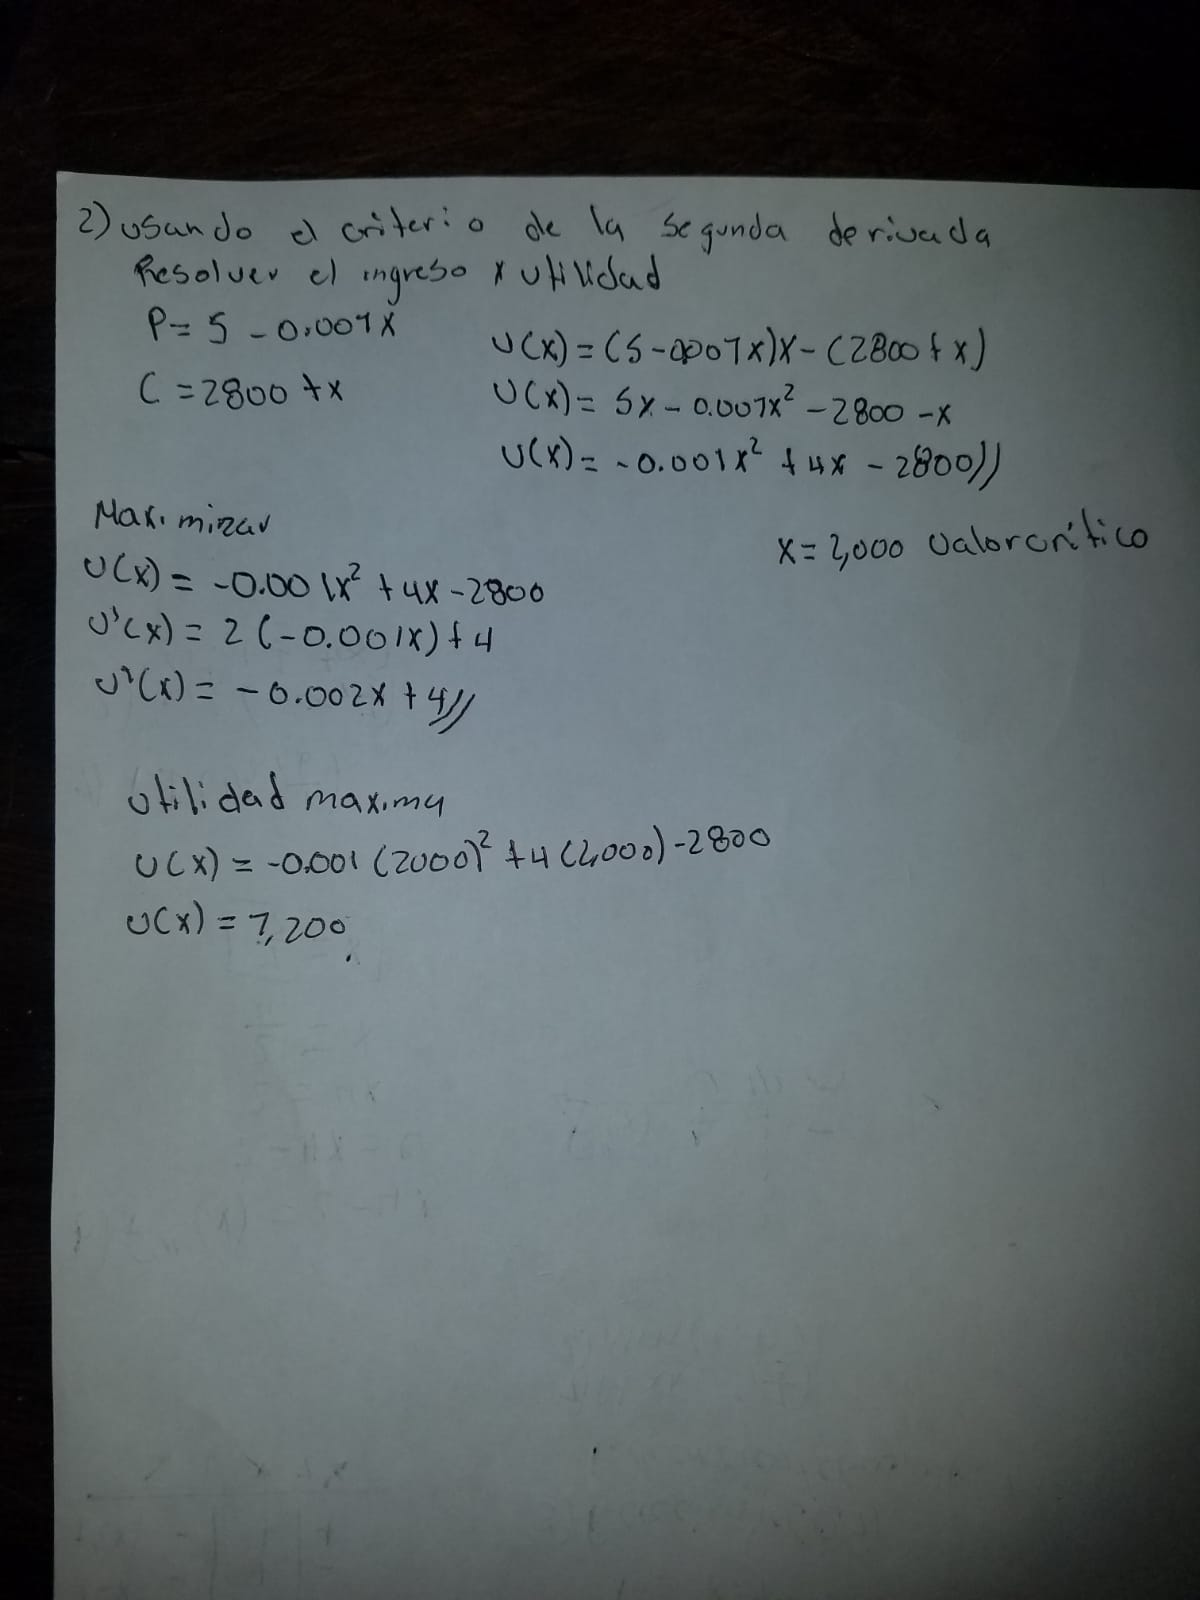 2) usando el criterio de la segunda derivada
Resolver el ingreso x utilidad
P= 5 - 0.001x
C = 2800 + x
U(x) = (5-0.001x)x - (2800 + x)
U(x) = 5x - 0.001x² - 2800 - x
U(x) = -0.001x² + 4x - 2800//
x = 2,000 valor crítico
Maximizar
U(x) = -0.001x² + 4x - 2800
U'(x) = 2(-0.001x) + 4
U'(x) = -0.002x + 4//
utilidad maxima
U(x) = -0.001 (2000)² + 4 (2,000) - 2800
U(x) = 1,200.